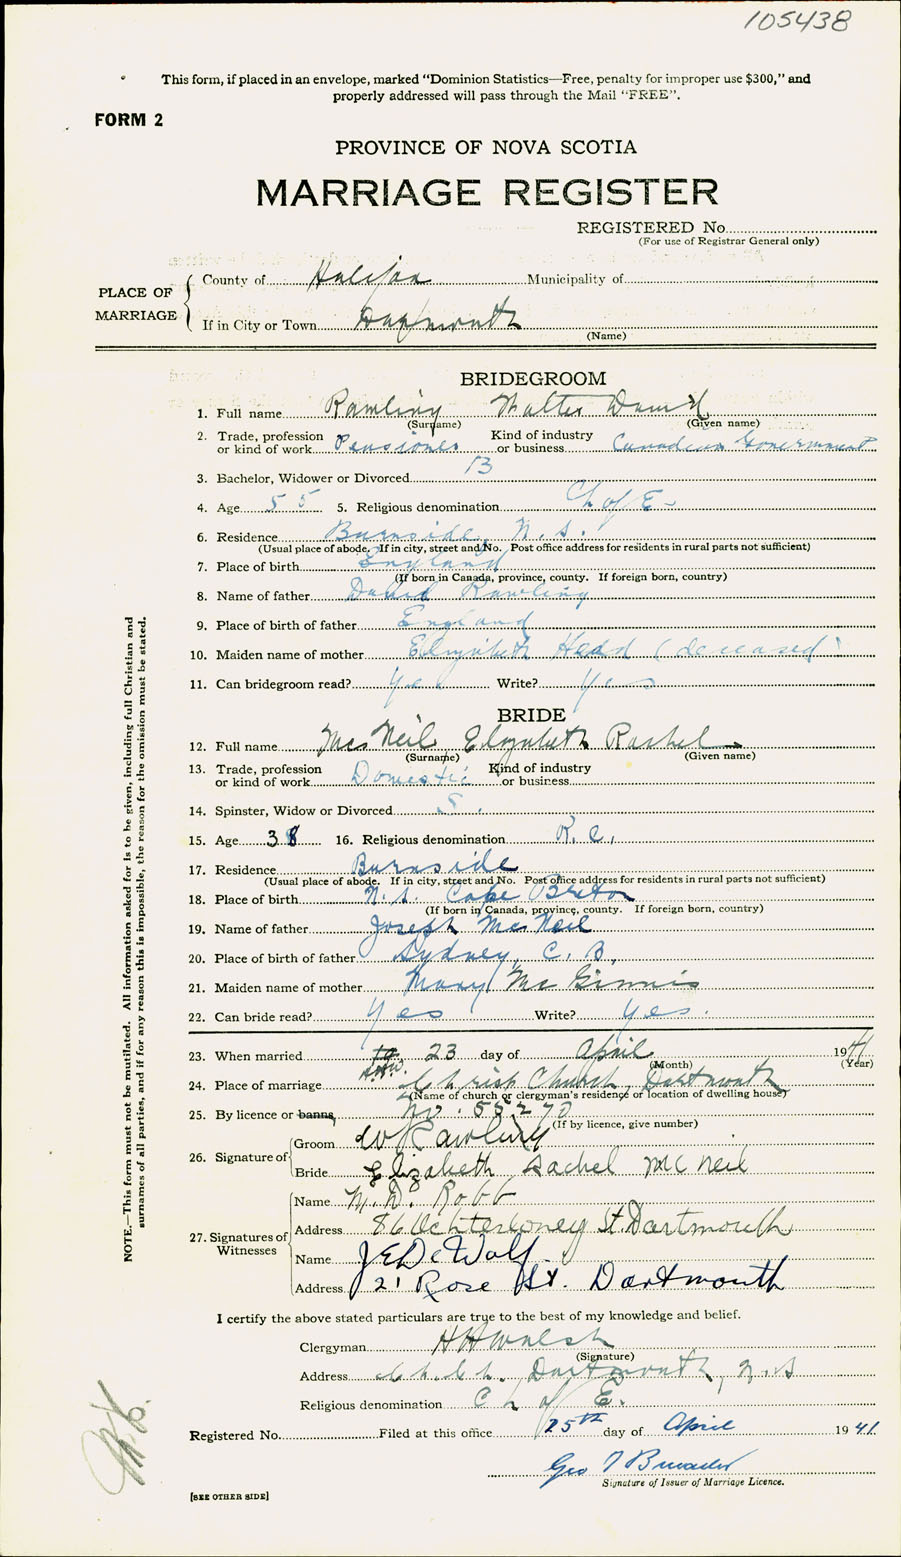 105438
This form, if placed in an envelope, marked “Dominion Statistics—Free, penalty for improper use $300,” and
properly addressed will pass through the Mail “FREE”.
FORM 2
PROVINCE OF NOVA SCOTIA
MARRIAGE REGISTER
REGISTERED No.
(For use of Registrar General only)
PLACE OF MARRIAGE
County of Halifax Municipality of
If in City or Town Dartmouth
(Name)
BRIDEGROOM
1. Full name Rawling Walter David
(Surname) (Given name)
2. Trade, profession or kind of work Pensioner Kind of industry or business Canadian Government
3. Bachelor, Widower or Divorced B
4. Age 55 5. Religious denomination Ch of E
6. Residence Burnside, N.S.
(Usual place of abode. If in city, street and No. Post office address for residents in rural parts not sufficient)
7. Place of birth England
(If born in Canada, province, county. If foreign born, country)
8. Name of father David Rawling
9. Place of birth of father England
10. Maiden name of mother Elizabeth Head (deceased)
11. Can bridegroom read? Yes Write? Yes
BRIDE
12. Full name McNeil Elizabeth Rachel
(Surname) (Given name)
13. Trade, profession or kind of work Domestic Kind of industry or business
14. Spinster, Widow or Divorced S.
15. Age 38 16. Religious denomination R.C.
17. Residence Burnside
(Usual place of abode. If in city, street and No. Post office address for residents in rural parts not sufficient)
18. Place of birth N.S. Cape Breton
(If born in Canada, province, county. If foreign born, country)
19. Name of father Joseph McNeil
20. Place of birth of father Sydney, C.B.
21. Maiden name of mother Mary McGinnis
22. Can bride read? Yes Write? Yes.
23. When married 23 day of April 1941
(Month) (Year)
24. Place of marriage Christ Church, Dartmouth
(Name of church or clergyman's residence or location of dwelling house)
25. By licence or banns, No. 55270
(If by licence, give number)
26. Signature of
Groom W Rawling
Bride Elizabeth Rachel McNeil
27. Signatures of Witnesses
Name Robb
Address 86 Ochterloney St Dartmouth
Name J E DeWolf
Address 21 Rose St. Dartmouth
I certify the above stated particulars are true to the best of my knowledge and belief.
Clergyman H H Walsh
(Signature)
Address Ch. Ch. Dartmouth, N.S
Religious denomination C h of E.
Registered No. Filed at this office 25th day of April 1941.
Geo
Signature of Issuer of Marriage Licence.
[SEE OTHER SIDE]
NOTE.—This form must not be mutilated. All information asked for is to be given, including full Christian and
surnames of all parties, and if for any reason this is impossible, the reason for the omission must be stated.